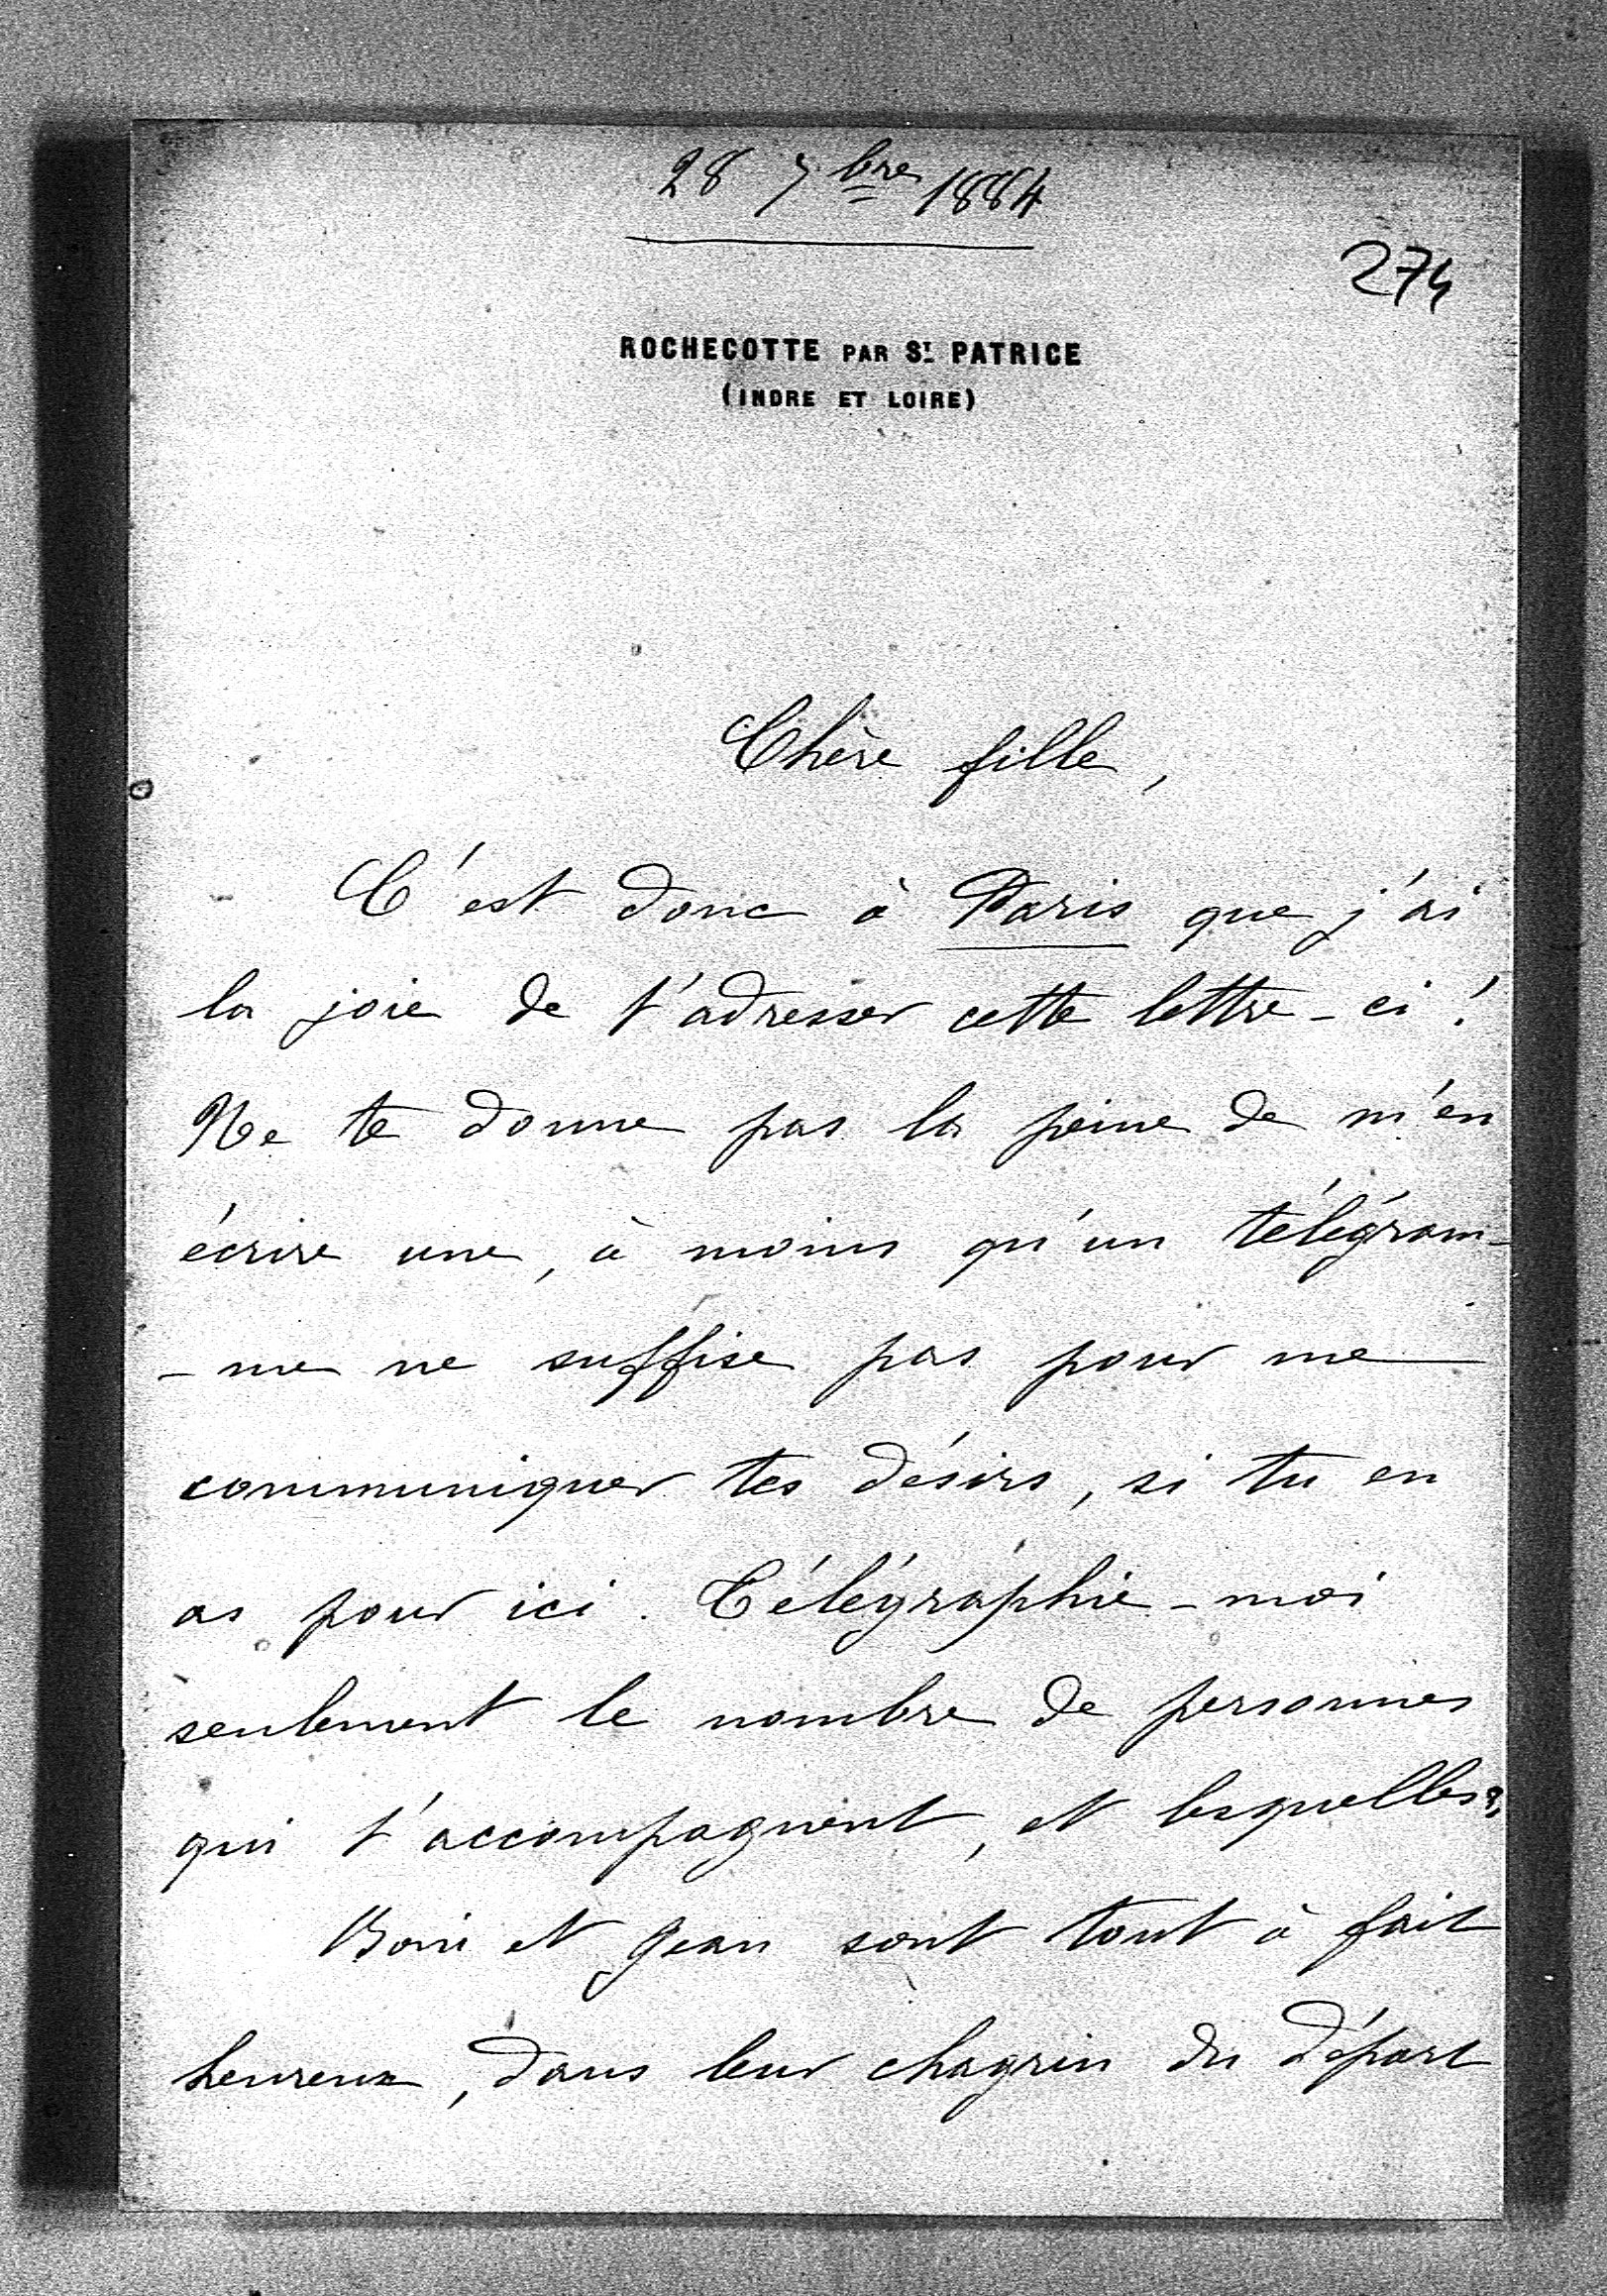 28 7bre 1884
274
ROCHECOTTE PAR ST. PATRICE
(INDRE ET LOIRE)
Chère fille,
C'est donc à Paris que j'ai
la joie de t'adresser cette lettre-ci!
Ne te donne pas la peine de m'en
écrire une, à moins qu'un télégram-
-me ne suffise pas pour me
communiquer tes désirs, si tu en
as pour ici. Télégraphie-moi
seulement le nombre de personnes
qui t'accompagnent, et lesquelles?
Boni et Jean sont tout à fait
heureux, dans leur chagrin du départ